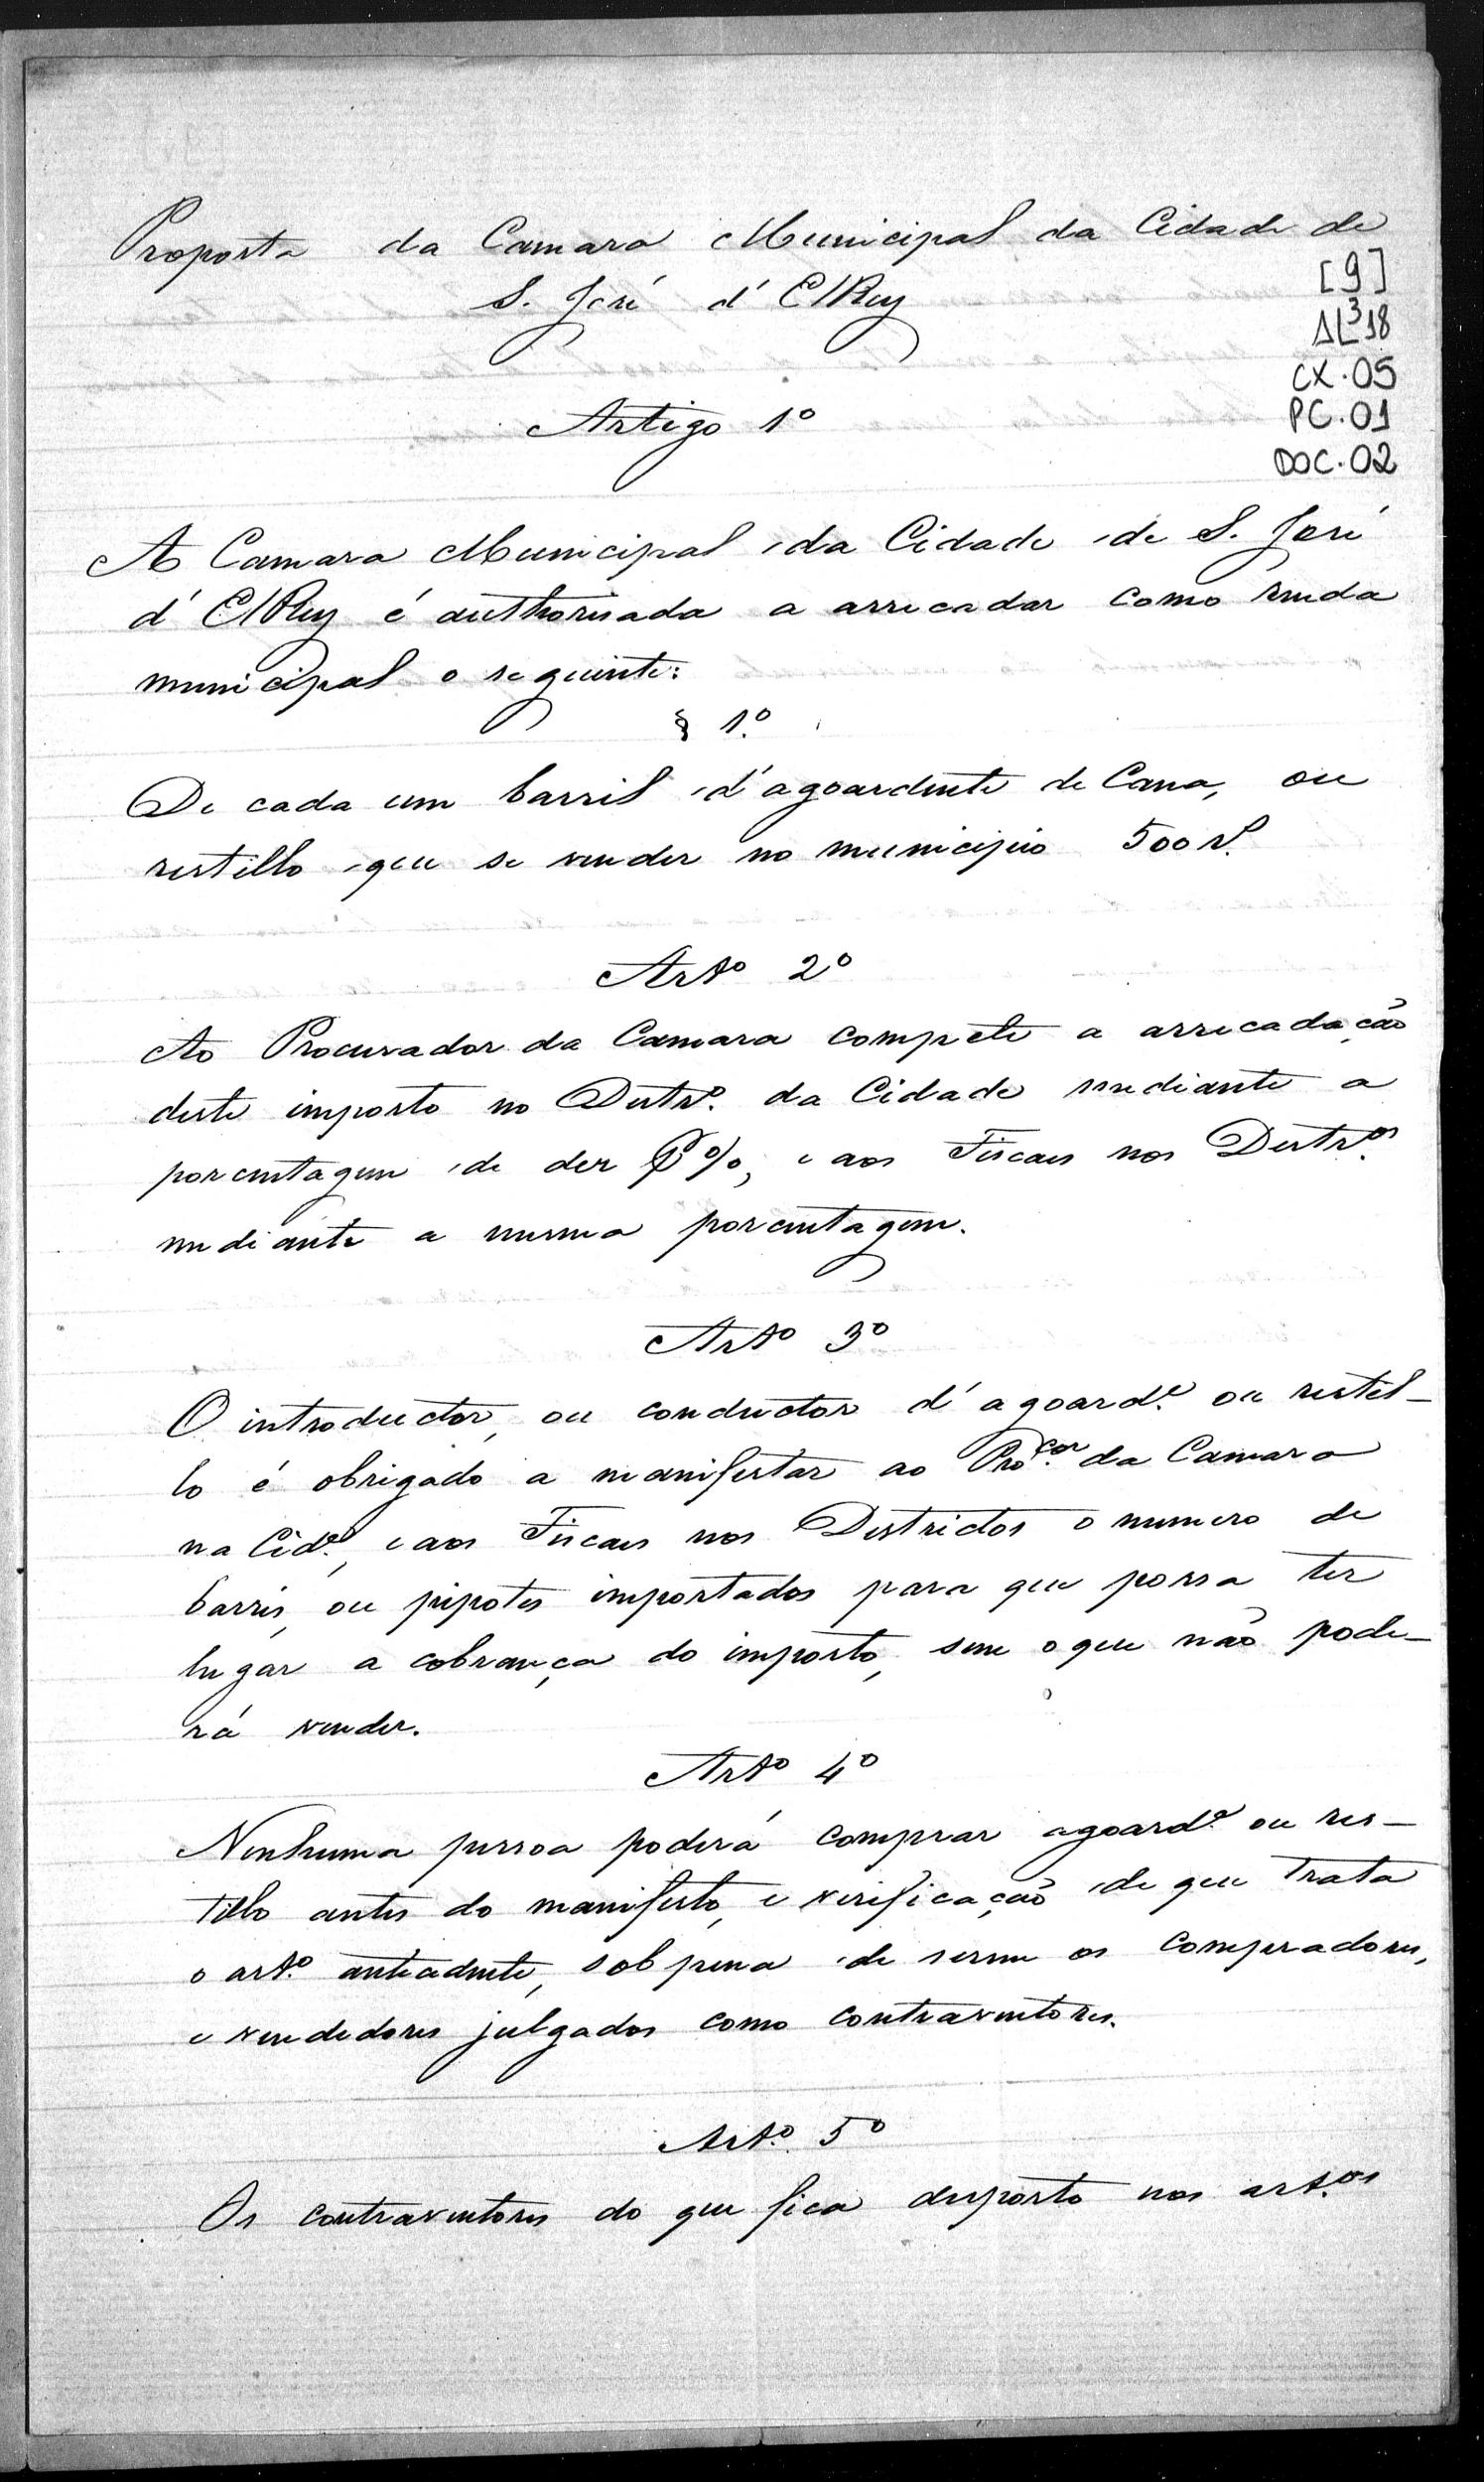 Proposta da Camara Municipal da Cidade de
S. José d'ElRey
[9]
AL³18
CX.05
PC.01
DOC.02
Artigo 1º
A Camara Municipal da Cidade de S. José
d'ElRey é authorisada a arrecadar como renda
municipal o seguinte:
§ 1.º
De cada um barril d'agoardente de Cana, ou
restillo que se vender no municipio 500 r.s
Artº 2º
Ao Procurador da Camara compete a arrecadação
deste imposto no Distr.º da Cidade mediante a
porcentagem de der %, e aos Fiscaes nos Distr.os
mediante a mesma porcentagem.
Artº 3º
O introductor, ou conductor d'agoard.e ou restil-
lo é obrigado a manifestar ao Pro.cor da Camara
na Cid.e, e aos Fiscaes nos Districtos o numero de
barris, ou pipotes importados para que possa ter
lugar a cobrança do imposto, sem o que não pode-
rá vender.
Artº 4º
Nenhuma pessoa poderá comprar agoard.e ou res-
tillo antes do manifesto, e verificação de que trata
o art.º antecedente, sob pena de serem os compradores,
e vendedores julgados como contraventores.
Art.º 5º
Os contraventores do que fica disposto nos art.os